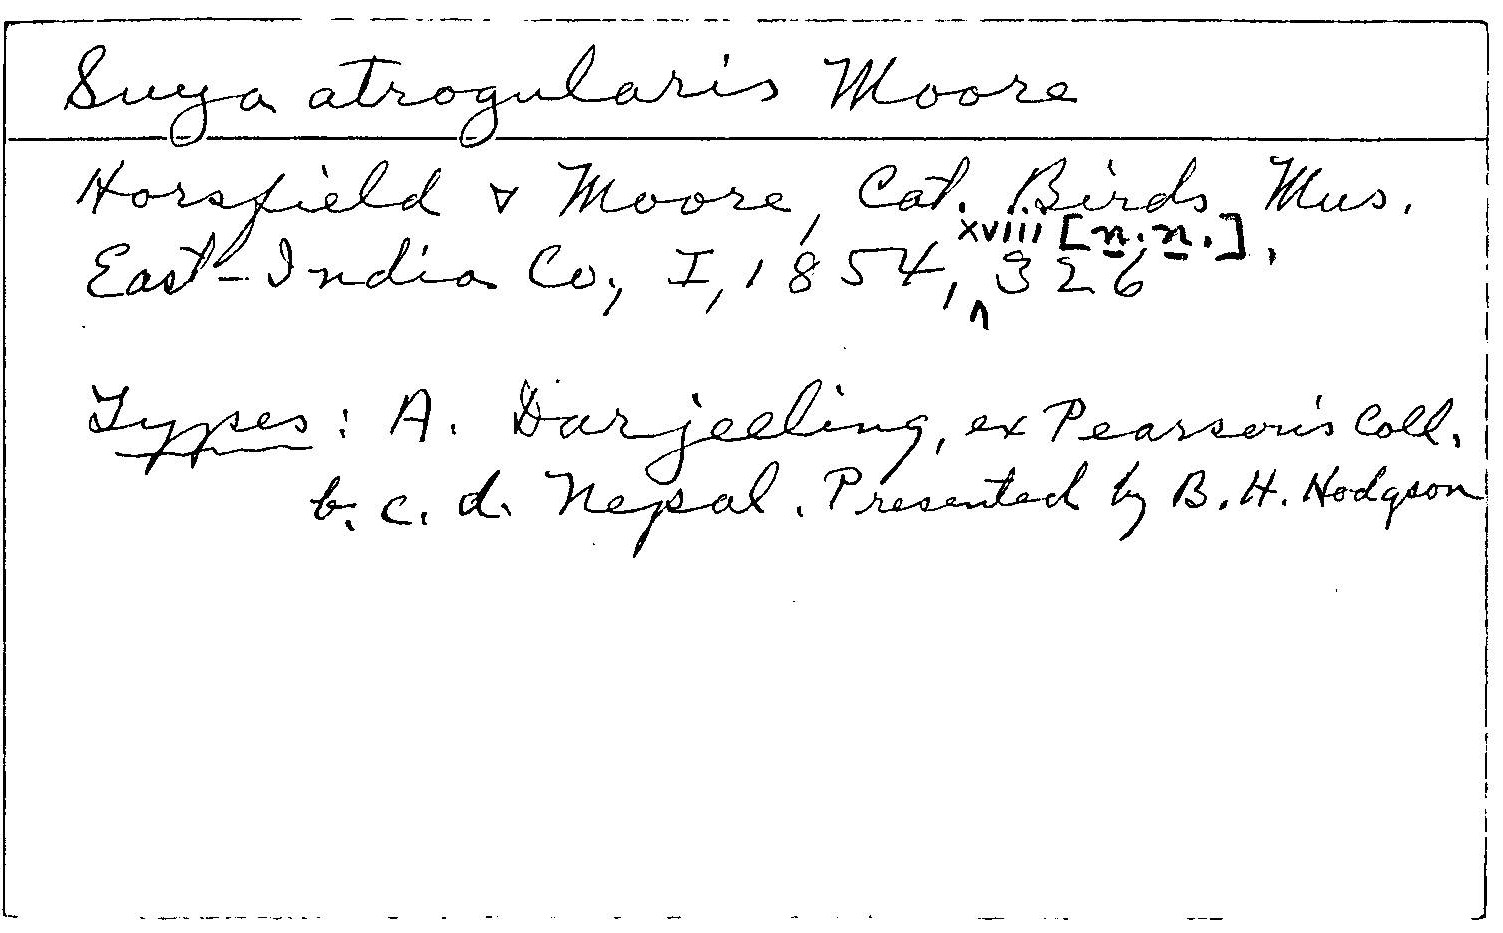 Suya atrogularis Moore
Horsfield & Moore, Cat. Birds Mus.
East-India Co., I, 1854, xviii [n.n.], 326
Types: A. Darjeeling, ex Pearson's Coll.
b. c. d. Nepal. Presented by B. H. Hodgson